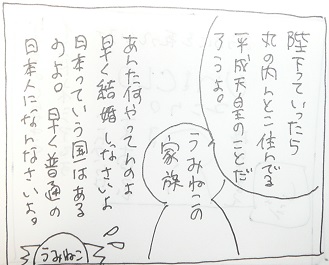 陛下っていったら
丸の内んとこ住んでる
平成天皇のことだ
ろうよ。
うみねこの
家族
あんた何やってんのよ
早く結婚しなさいよ
日本っていう国はある
のよ。早く普通の
日本人になんなさいよ。
うみねこ